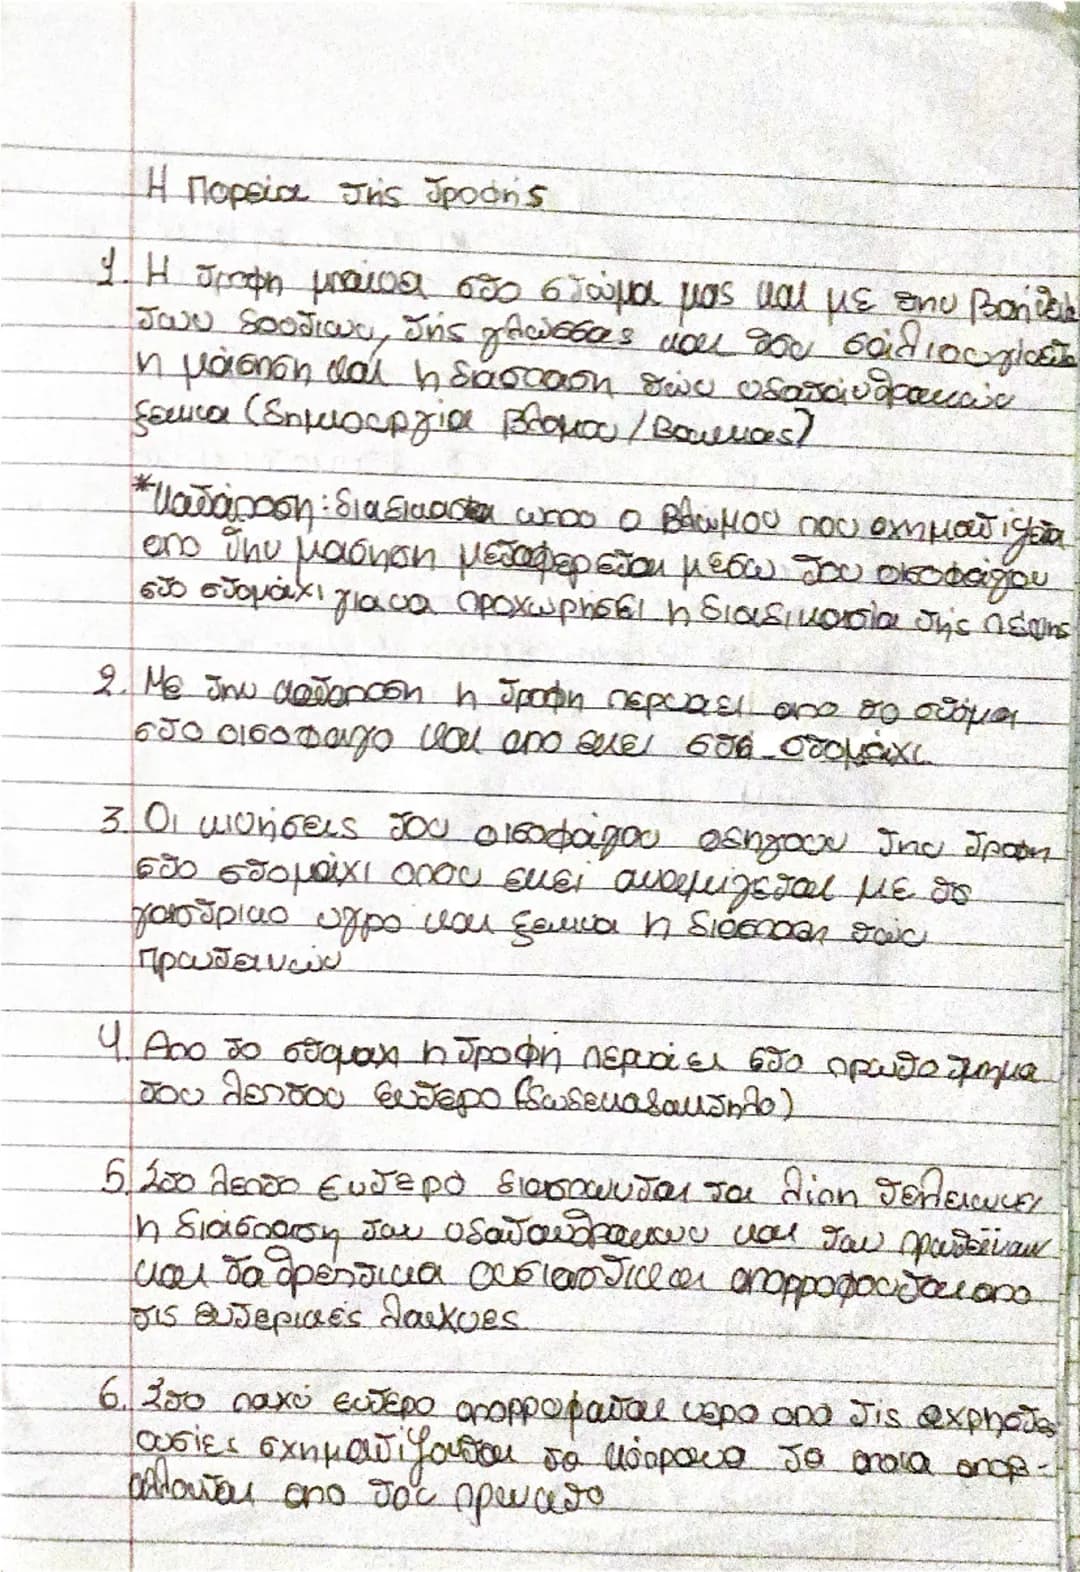 Η Πορεία της τροφής
1. Η τροφη μπαίνει στο στόμα μας και με την βοήθεια
των δοοδιων, της γλώσσας και του σάλιου γίνεται
η μάσηση και η διάσπαση των υδατάνθρακων
ξεκινα (δημιουργία βλομου / βουκιας)
*Καταποση: διαδικασια οπου ο βλωμου που σχηματιζεται
απο την μασηση μεταφερεται μεσω του οισοφάγου
στο στομάχι για να προχωρήσει η διαδικασία της πέψης
2. Με την καταποση η τροφη περναει απο το στόμα
στο οισοφαγο και απο εκει στο στομάχι.
3. Οι κινήσεις του οισοφάγου οδηγουν την τροφη
στο στομάχι οπου εκεί αναμιγεται με το
γαστρικο υγρο και ξεκινα η διάσπαση των
πρωτεινών
4. Απο το στομαχι η τροφή περνάει στο πρωτο τμημα
του λεπτου εντερο (δωδεκαδακτηλο)
5. Στο λεπτο εντερο διασπωνται τα λίπη τελειωνει
η διάσπαση των υδατανθρακων και των πρωτεϊνων
και τα θρεπτικα συστατικα απορροφουνται απο
τις εντερικές λαχνες
6. Στο παχύ εντερο απορροφαται νερο απο τις αχρηστες
ουσίες σχηματιζονται τα κόπρανα τα οποια αποβ-
αλλονται απο τον πρωκτο